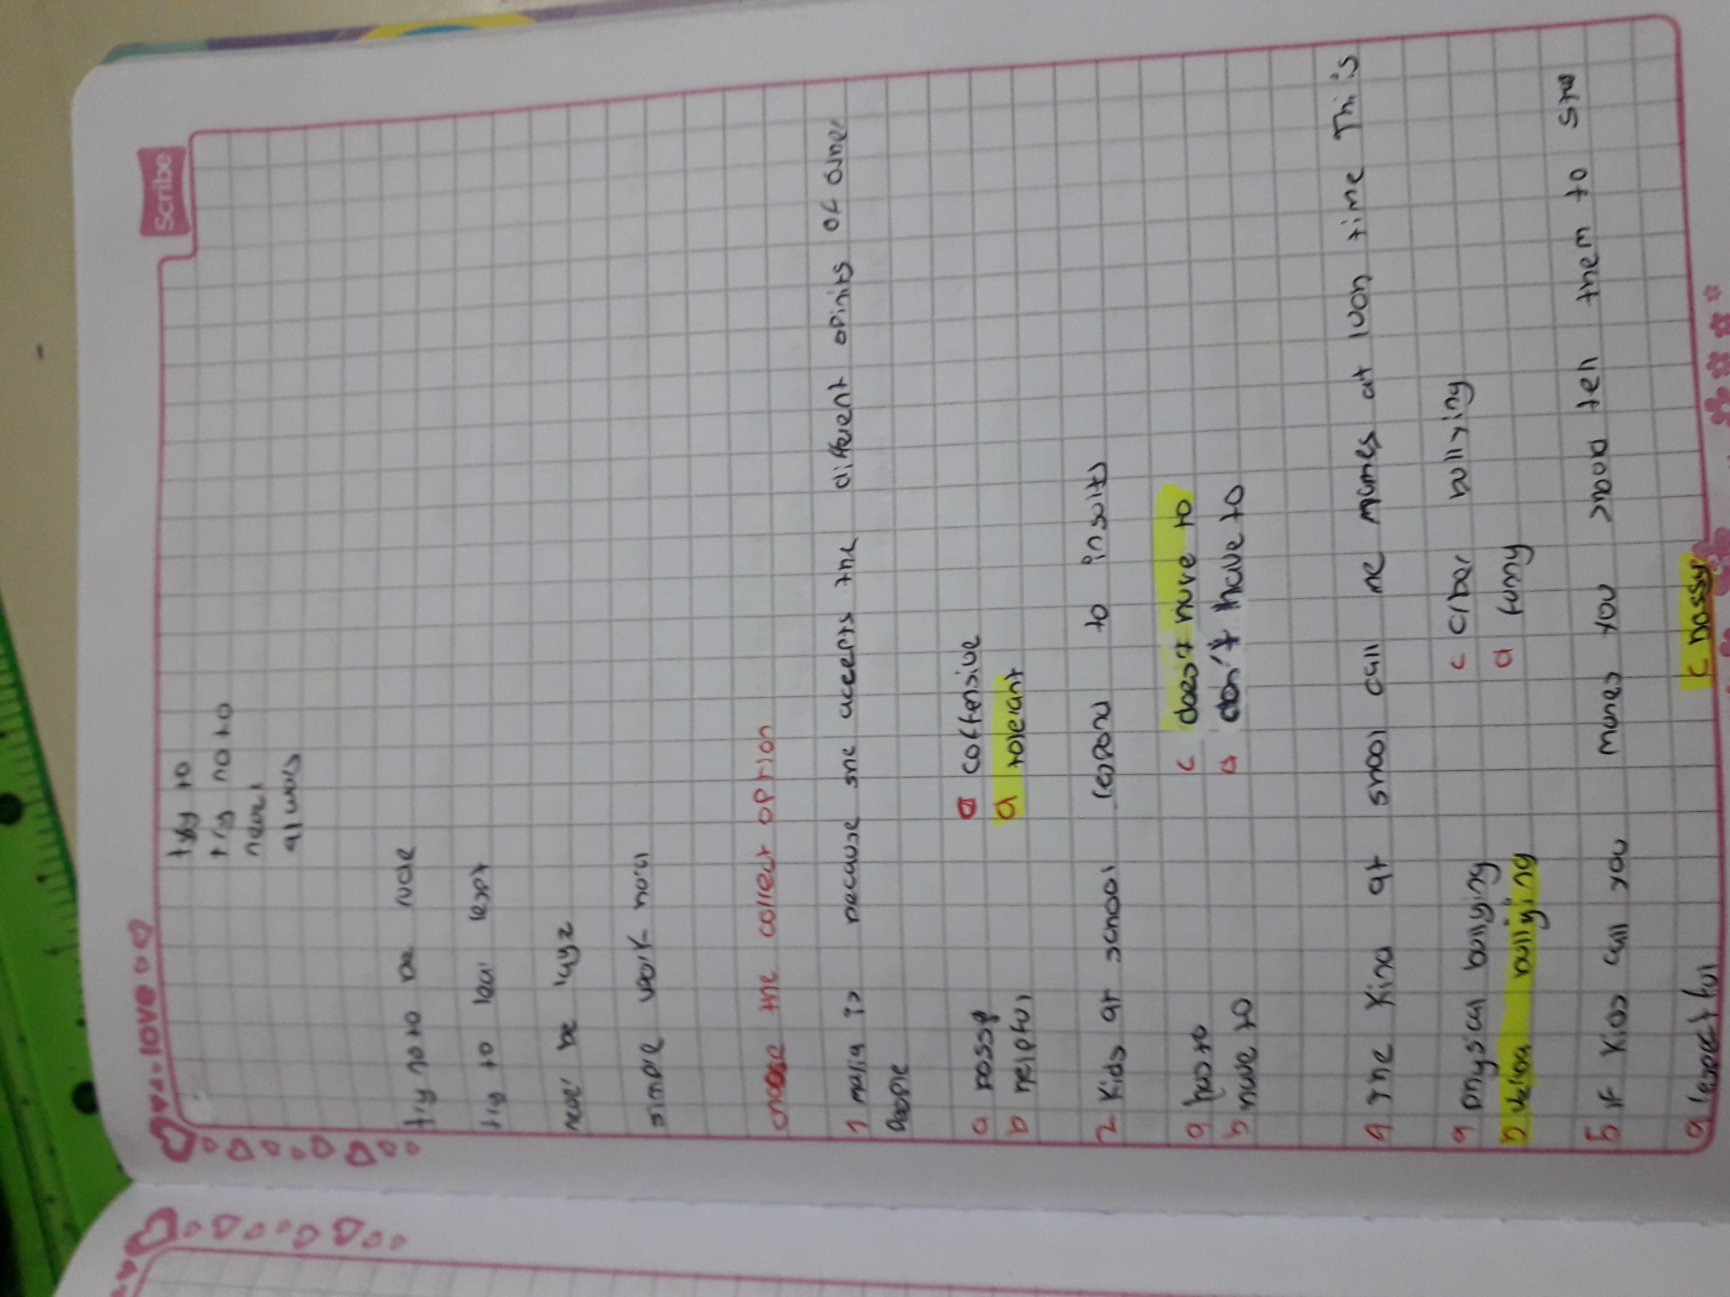 love
Scribe
try to
try no to
never
always
try no to be rude
try to be lespt
never be layz
simple work
choose the collect option
1 malia is because she accepts the different opinits of ouner
people
a bossy a coffensive
b helpful a tolerant
2 Kids at school respond to insults
a has to c doesn't have to
b have to d don't have to
4 The Kind at shool call me names at luon time This is
a physical bullying c cibar bullying
b verbal bullying d funny
5 if Kids call you manes you should tell them to
a respectful c bossy